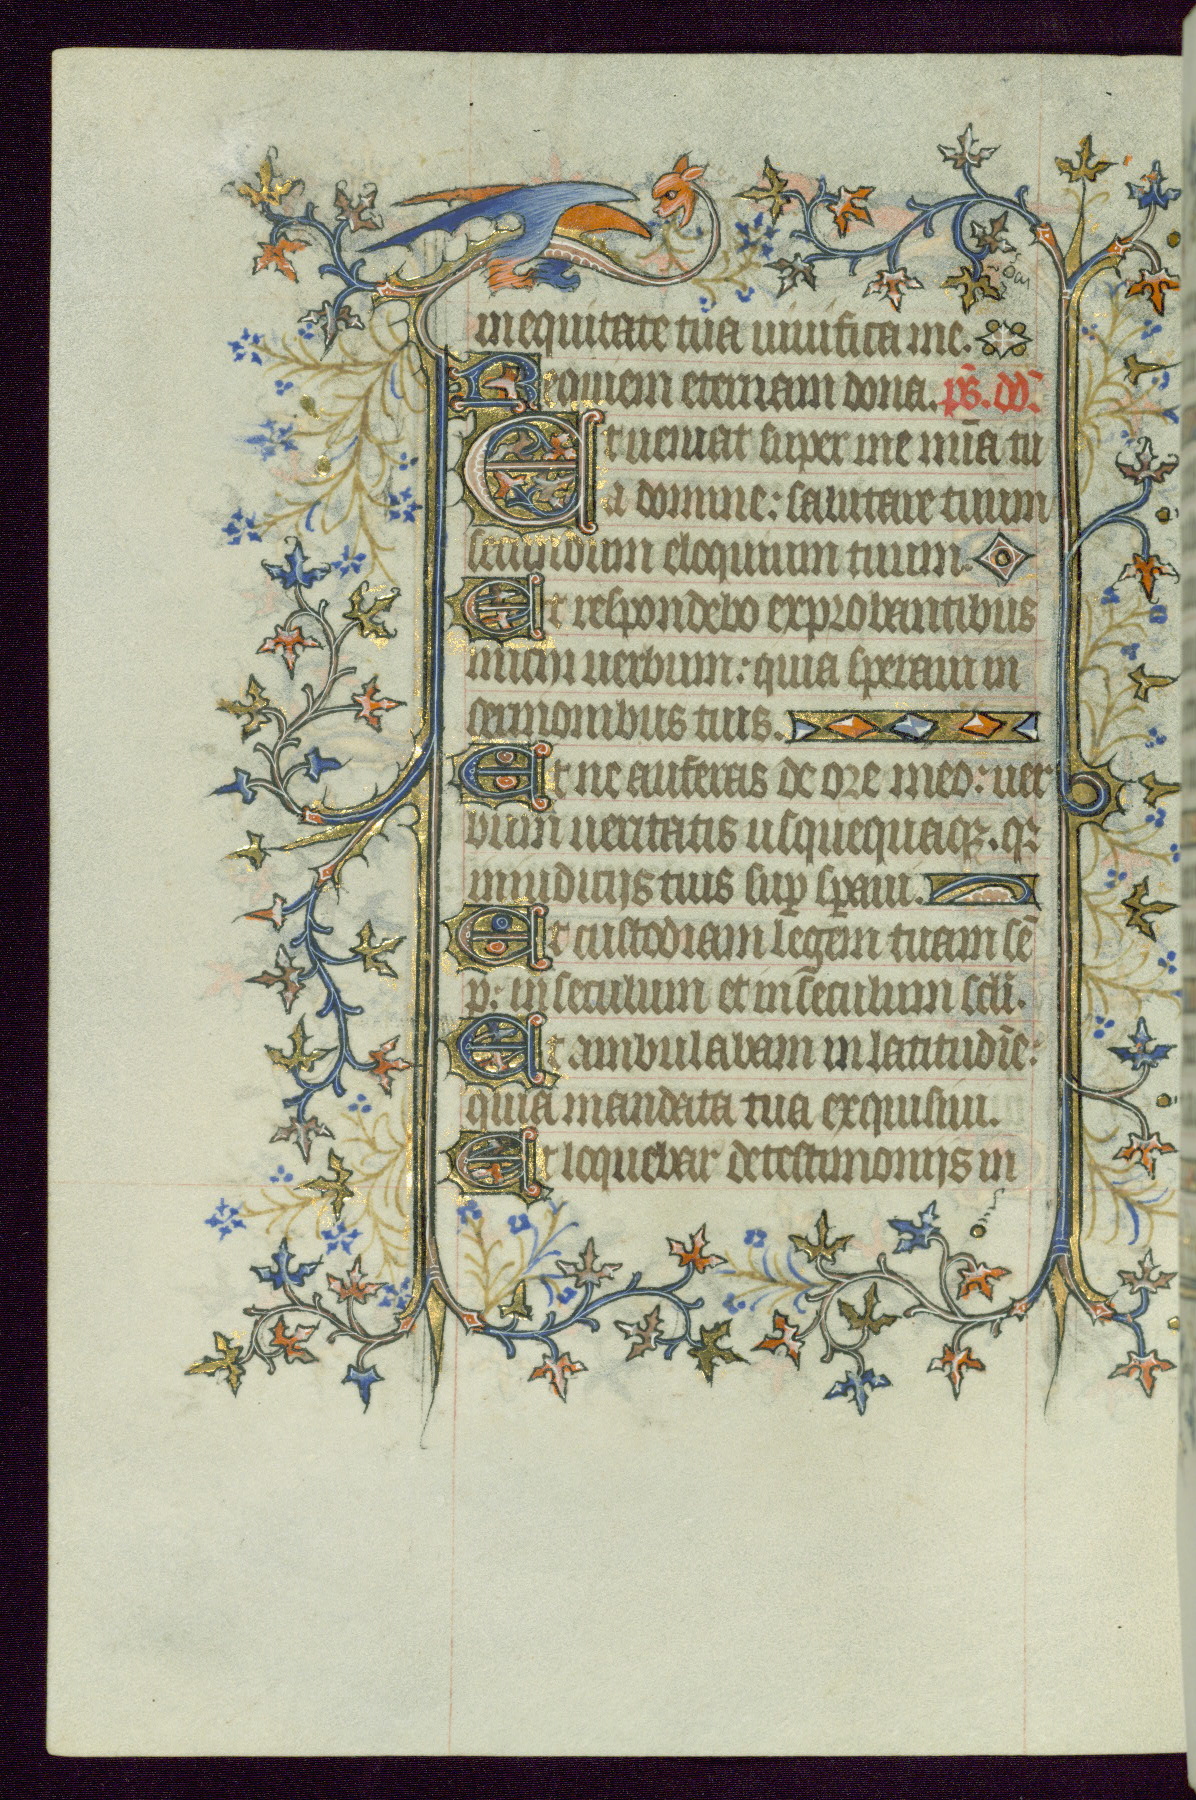 in equitate tua uiuifica me.
Requiem eternam dona. p̄s. dd̄
Et ueniat super me mīa tu
a domine: salutare tuum
secundum eloquium tuum.
Et respondebo exprobantibus
michi uerbum: quia speraui in
sermonibus tuis.
Et ne auferas de ore meo: uer
bum ueritatis usquequaqꝫ. qꝛ
in iudicijs tuis sup̱ sp̱aui.
Et custodiam legem tuam sē
p̱: in seculum et in seculum sclī.
Et ambulabam in latitudīe:
quia mandata tua exquisiui.
Et loquebar de testimonijs in